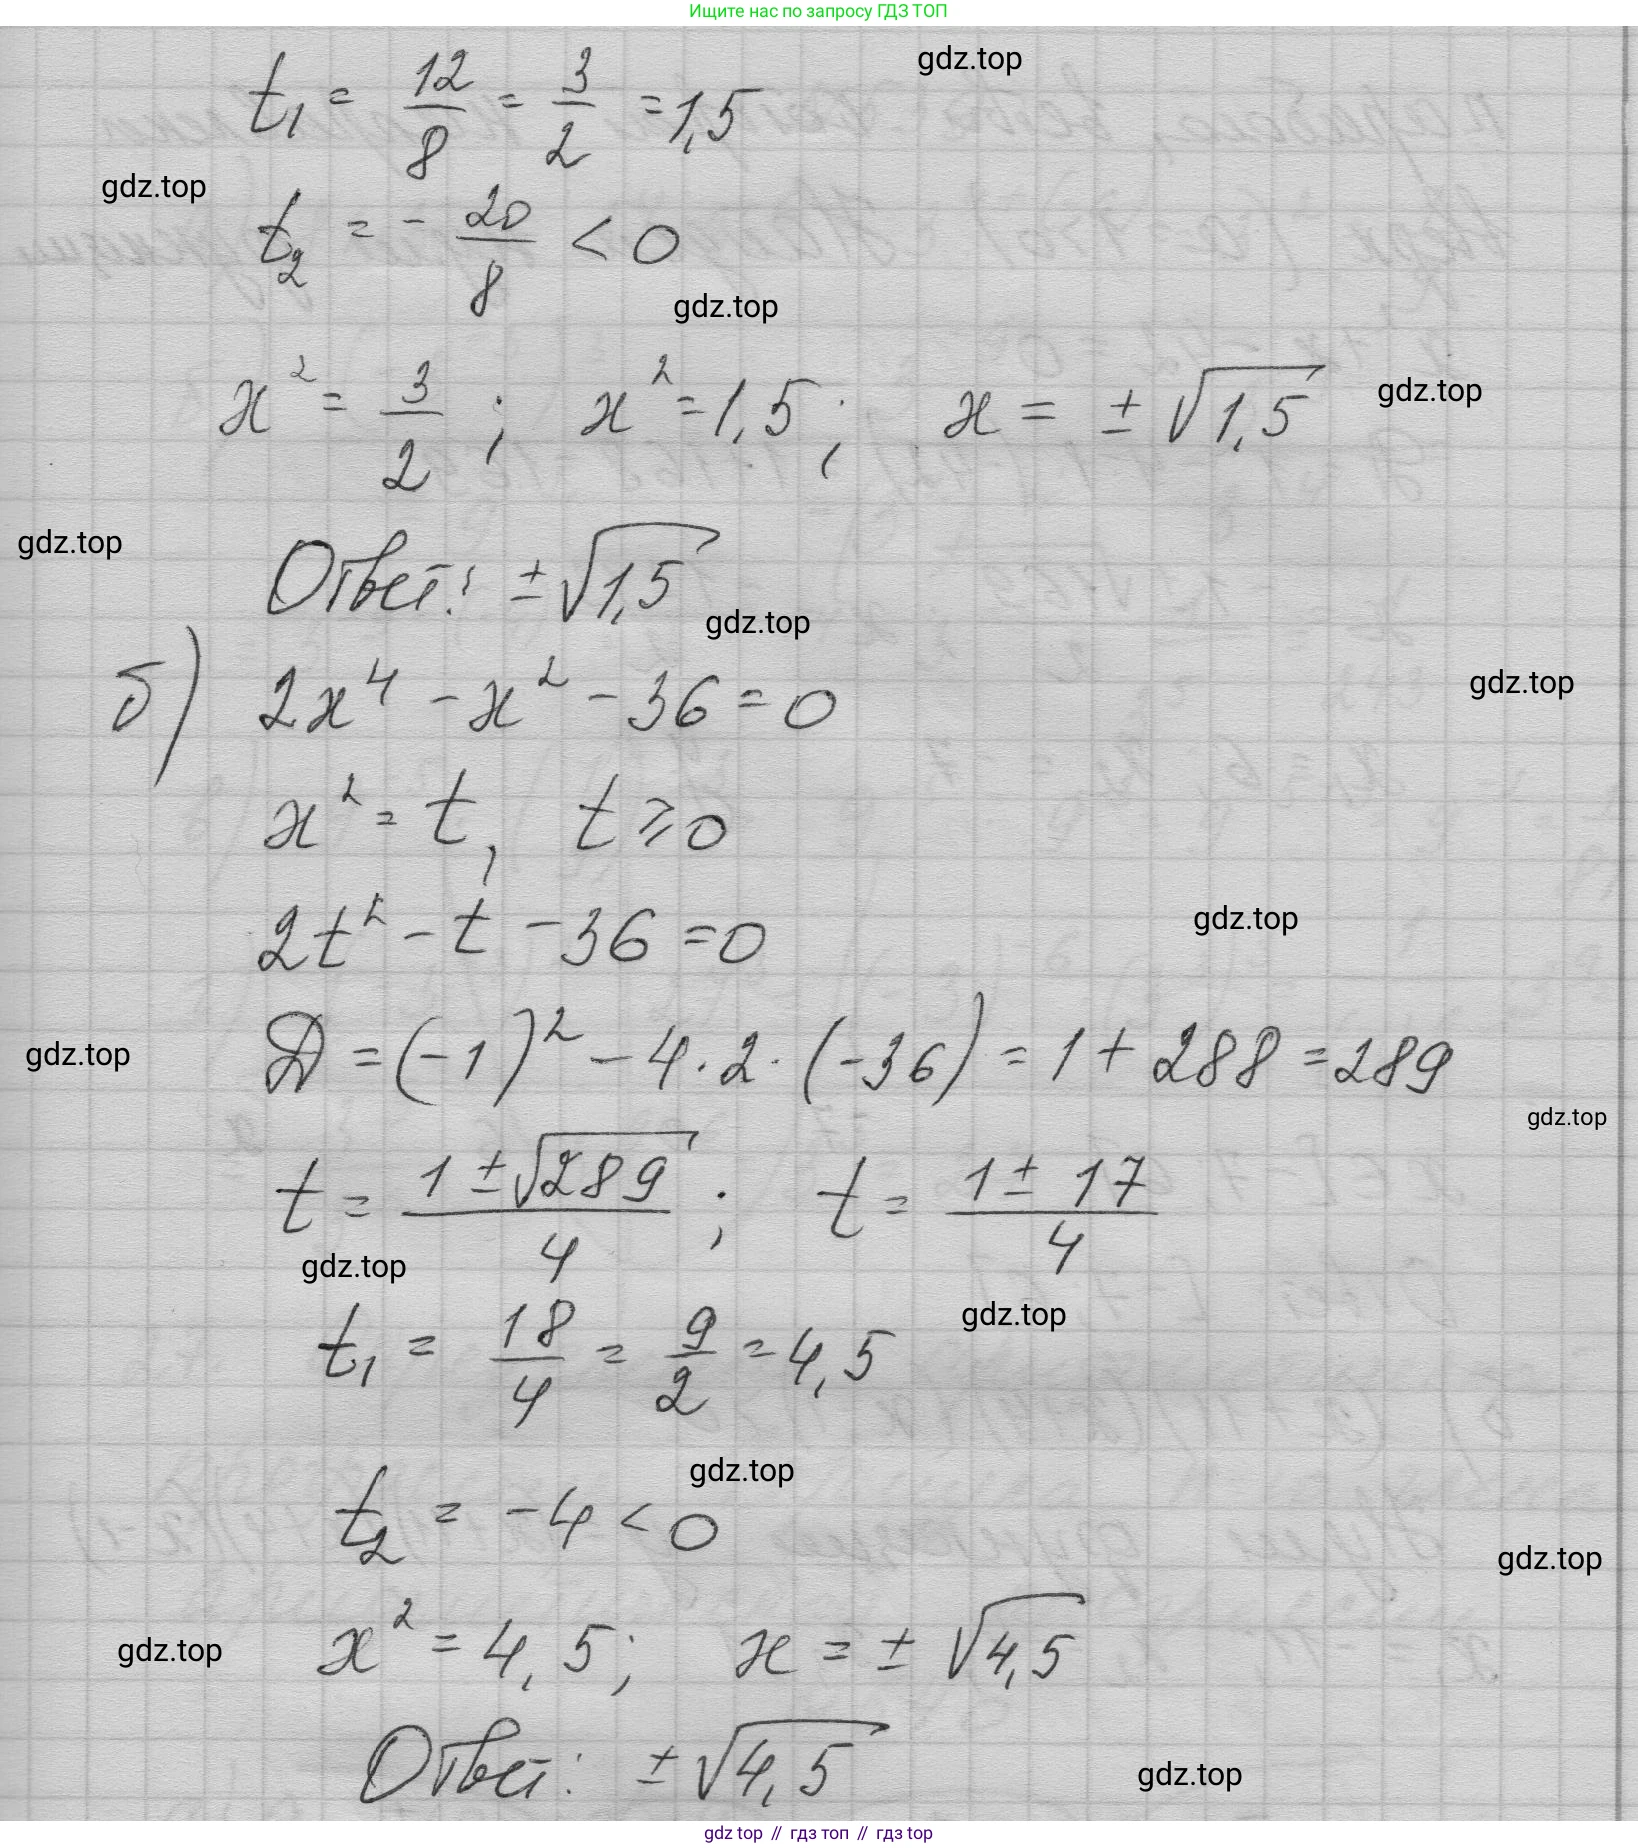 Ищите нас по запросу ГДЗ ТОП
gdz.top
t₁ = 12/8 = 3/2 = 1,5
gdz.top
t₂ = - 20/8 < 0
gdz.top
x² = 3/2 ; x² = 1,5 ; x = ± √1,5
gdz.top
gdz.top
Ответ: ± √1,5
gdz.top
б) 2x⁴ - x² - 36 = 0
gdz.top
x² = t, t ⩾ 0
2t² - t - 36 = 0
gdz.top
D = (-1)² - 4 · 2 · (-36) = 1 + 288 = 289
gdz.top
gdz.top
t = (1 ± √289)/4 ; t = (1 ± 17)/4
gdz.top
gdz.top
t₁ = 18/4 = 9/2 = 4,5
gdz.top
t₂ = -4 < 0
gdz.top
x² = 4,5; x = ± √4,5
gdz.top
Ответ: ± √4,5
gdz.top
gdz top // гдз топ // гдз top